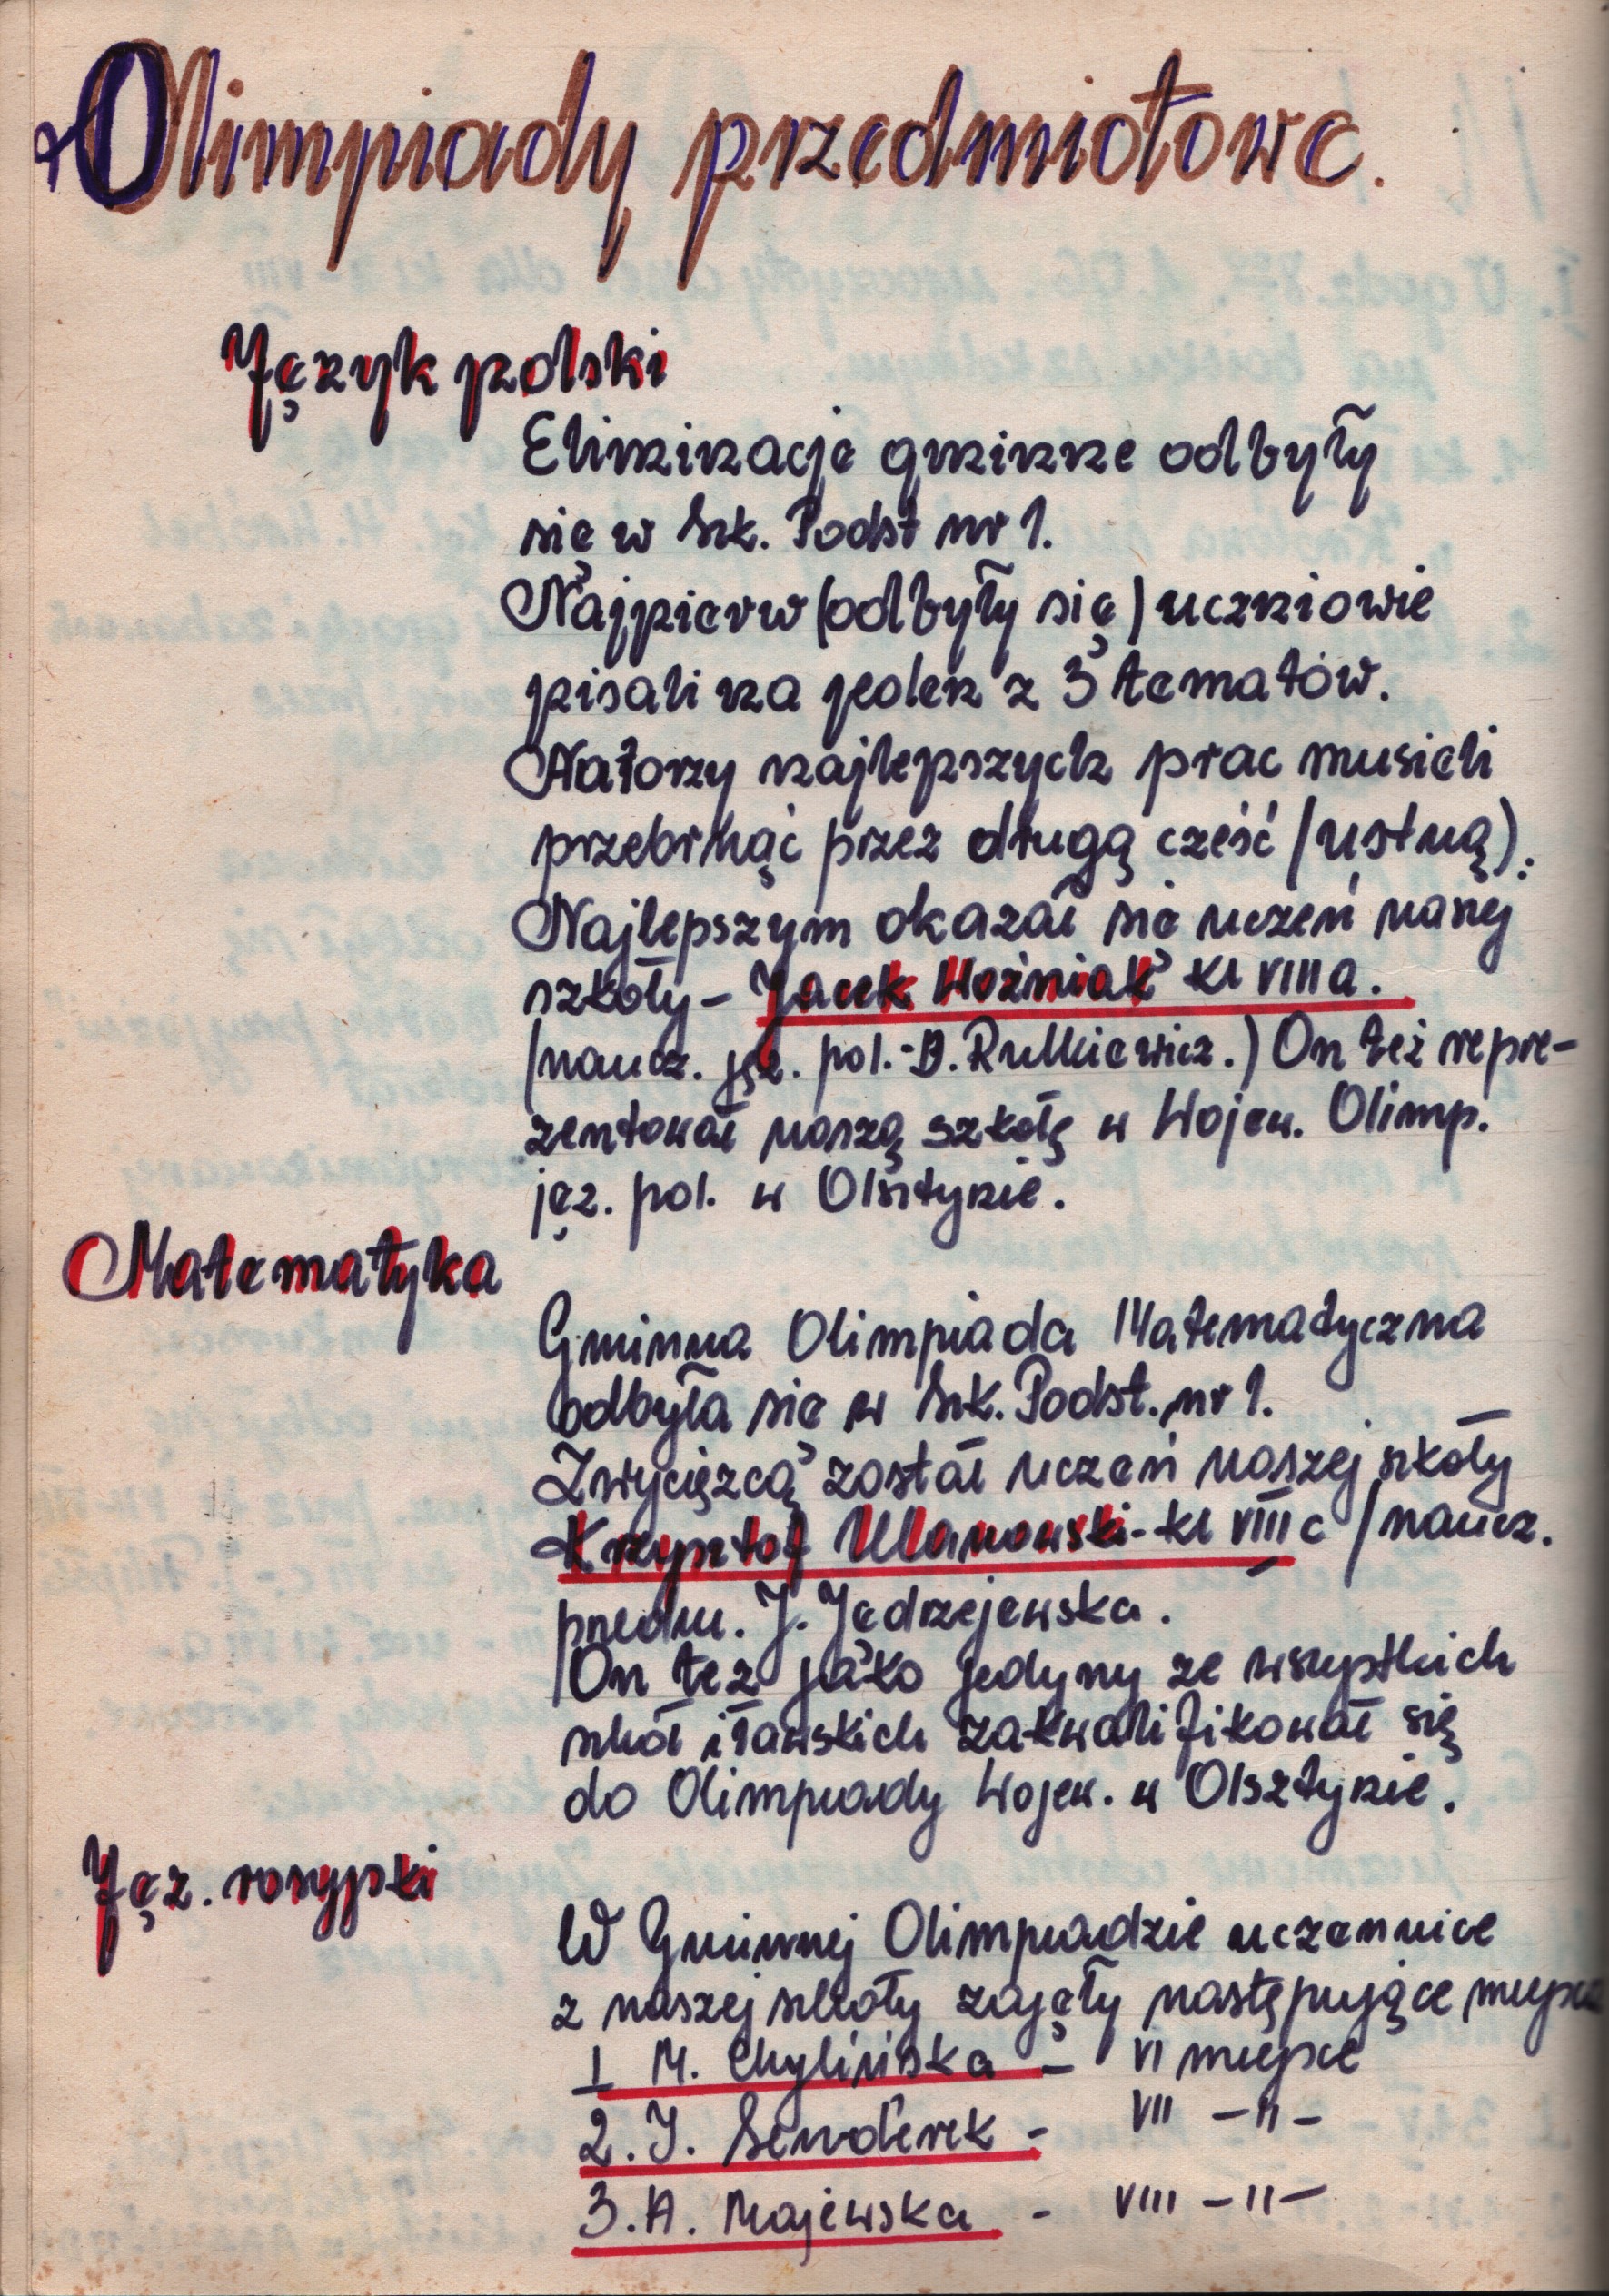 Olimpiady przedmiotowe.
Język polski
Eliminacje gminne odbyły
się w Szk. Podst nr 1.
Najpierw (odbyły się) uczniowie
pisali na jeden z 3 tematów.
Autorzy najlepszych prac musieli
przebrnąć przez drugą cześć (ustną).
Najlepszym okazał się uczeń naszej
szkoły - Jacek Woźniak kl VIII a.
(naucz. jęz. pol. - D. Rutkiewicz.) On też repre-
zentował naszą szkołę w Wojew. Olimp.
jęz. pol. w Olsztynie.
Matematyka
Gminna Olimpiada Matematyczna
odbyła się w Szk. Podst. nr 1.
Zwycięzcą został uczeń naszej szkoły
Krzysztof Ulanowski - kl VIII c /naucz.
przedm. J. Jędrzejewska.
On też jako jedyny ze wszystkich
szkół iławskich zakwalifikował się
do Olimpiady Wojew. w Olsztynie.
Jęz. rosyjski
W Gminnej Olimpiadzie uczennice
z naszej szkoły zajęły następujące miejsca
1 M. Chylińska - VI miejsce
2. J. Senderek - VII - 11 -
3. A. Majewska - VIII - 11 -